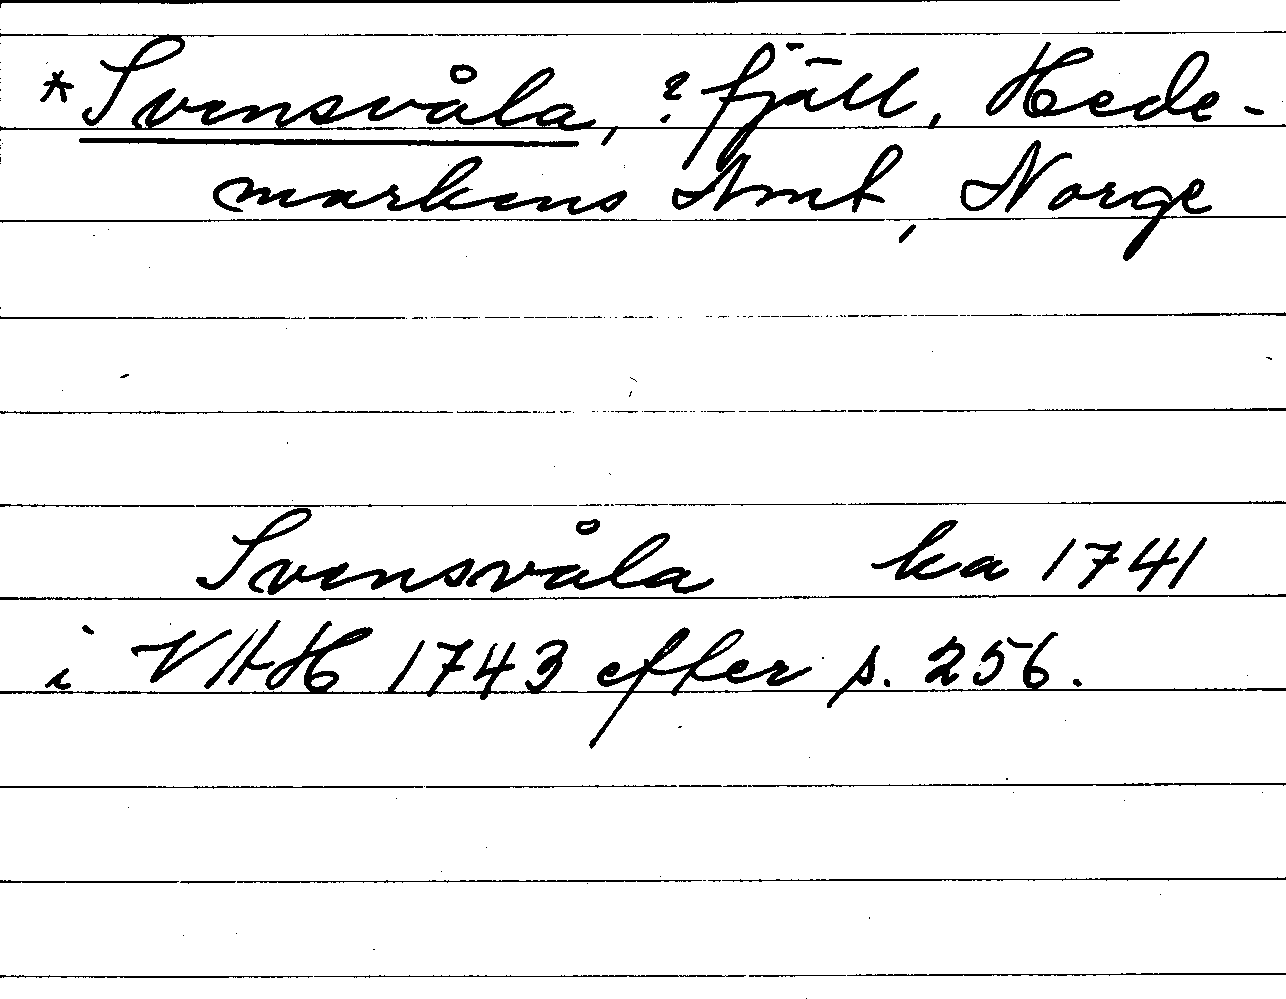 *Svensvåla, ? fjäll, Hede-
markens Amt, Norge
Svensvåla ka 1741
i VAH 1743 efter s. 256.